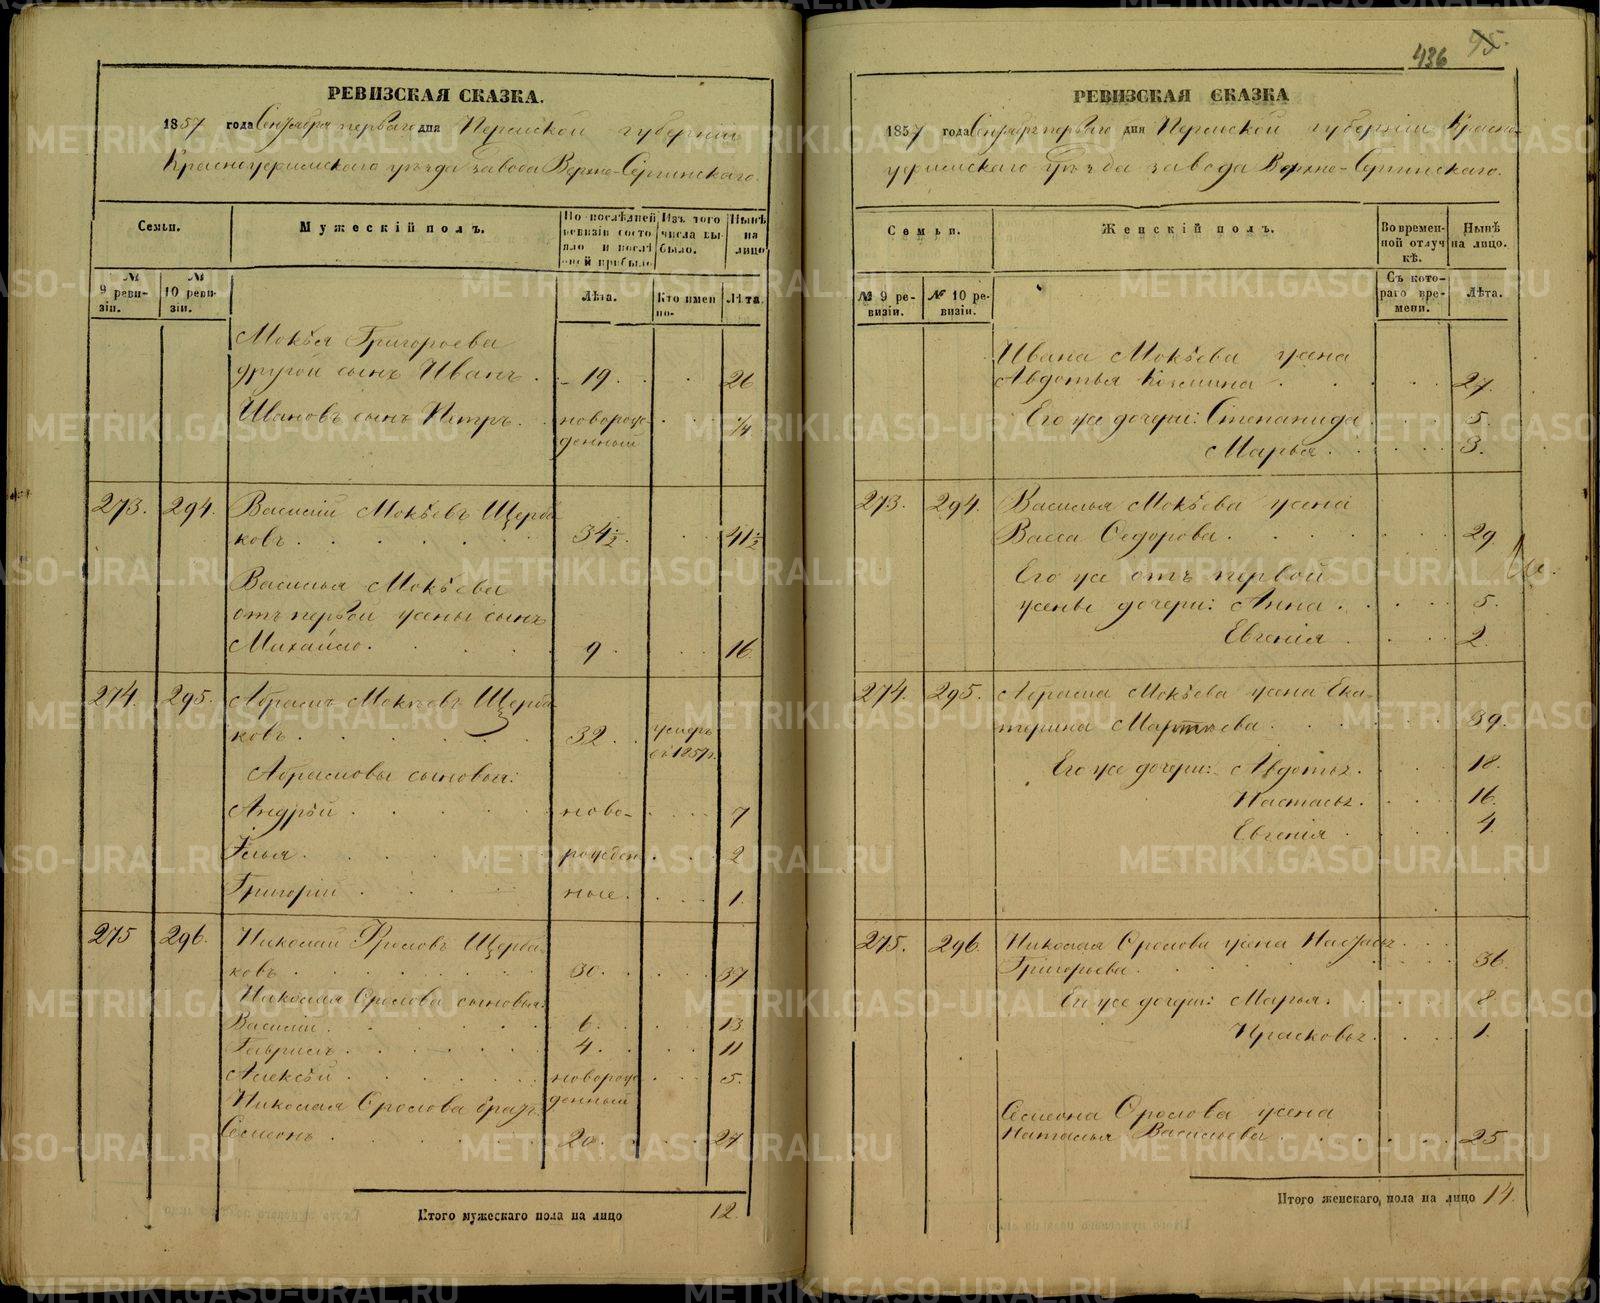 РЕВИЗСКАЯ СКАЗКА.
1857 года Сентября перваго дня Пермской губерніи
Красноуфимскаго уѣзда завода Верхне-Сергинскаго.
Семьи.
Мужескій полъ.
По послѣдней ревизіи состояло и послѣ оной прибыло
Изъ того числа выбыло.
Нынѣ на лицо
№ 9 ревизіи.
№ 10 ревизіи.
Лѣта.
Кто именно.
Лѣта.
Мокѣя Григорьева
другой сынъ Иванъ . 19 . 26
Ивановъ сынъ Петръ . новорожденный . 1/4
273. 294. Василій Мокѣевъ Щербаковъ . 34½ . 41½
Василья Мокѣева
отъ первой жены сынъ
Михайло . 9 . 16
274. 295. Абрамъ Мокѣевъ Щербаковъ . 32 . умеръ въ 1857 г.
Абрамовы сыновья:
Андрѣй . ново- . 7
Илья . рожден- . 2
Григорій . ные . 1.
275 296. Николай Фроловъ Щербаковъ . 30 . 37
Николая Фролова сыновья:
Василій . 6 . 13
Гаврилъ . 4 . 11
Алексѣй . новорожденный . 5.
Николая Фролова братъ
Семенъ . 20 . 27
Итого мужескаго пола на лицо 12.
436 95.
РЕВИЗСКАЯ СКАЗКА
1857 года Сентября перваго дня Пермской губерніи Красно-
уфимскаго уѣзда завода Верхне-Сергинскаго.
Семьи.
Женскій полъ.
Во временной отлучкѣ.
Нынѣ на лицо.
№ 9 ревизіи.
№ 10 ревизіи.
Съ котораго времени.
Лѣта.
Ивана Мокѣева жена
Авдотья Козмина . 27.
Его же дочери: Степанида . 5.
Марья . 3.
273. 294. Василья Мокѣева жена
Васса Федорова . 29.
Его же отъ первой
жены дочери: Анна . 5.
Евгенія . 2.
274. 295. Абрама Мокѣева жена Ека-
терина . 39.
Его же дочери: Авдотья . 18.
Настасья . 16.
Евгенія . 4.
275. 296. Николая Фролова жена Настасья
Григорьева . 36.
Его же дочери: Марья . 8
Прасковья . 1.
Семена Фролова жена
Наталья Васильева . 25.
Итого женскаго пола на лицо 14.
METRIKI.GASO-URAL.RU